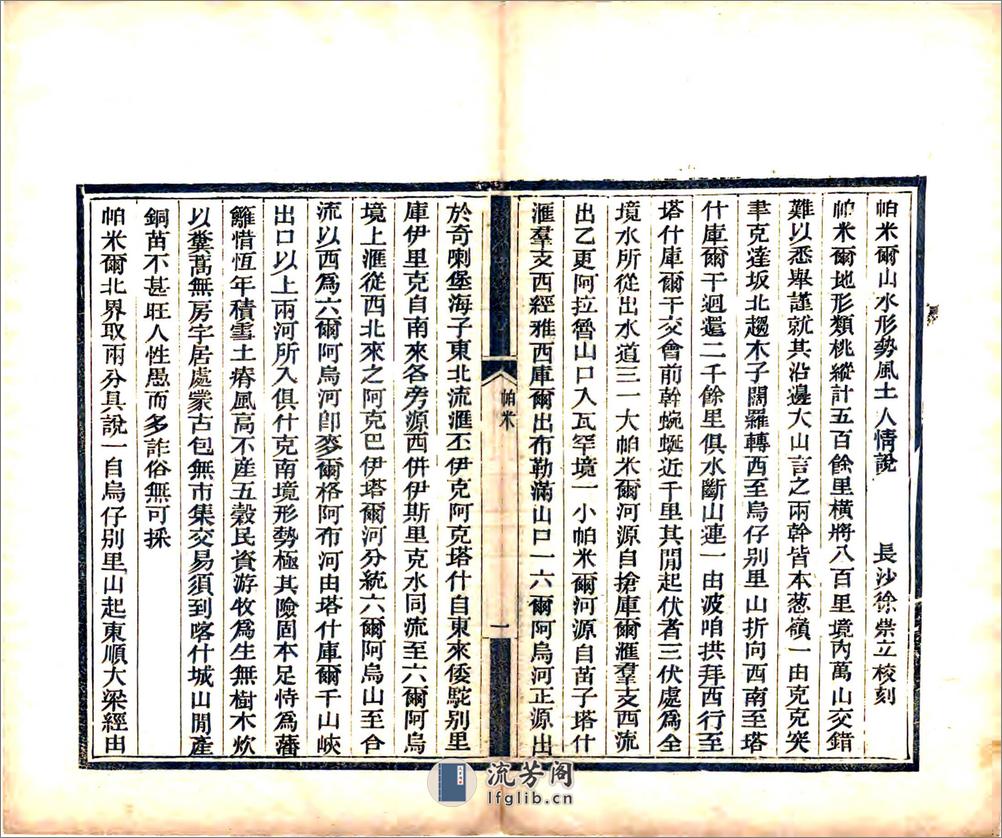 帕米爾山水形勢風土人情說 長沙徐崇立校刻
帕米爾地形類桃縱計五百餘里橫將八百里境內萬山交錯
難以悉舉謹就其沿邊大山言之兩幹皆本葱嶺一由克克突
聿克達坂北趨木子闊羅轉西至烏仔別里山折向西南至塔
什庫爾干迴還二千餘里俱水斷山連一由波咱拱拜西行至
塔什庫爾干交會前幹蜿蜒近千里其閒起伏者三伏處爲全
境水所從出水道三一大帕米爾河源自搶庫爾滙羣支西流
出乙更阿拉魯山口入瓦罕境一小帕米爾河源自苗子塔什
滙羣支西經雅西庫爾出布勒滿山口一六爾阿烏河正源出
帕米
一
於奇喇堡海子東北流滙丕伊克阿克塔什自東來倭駝別里
庫伊里克自南來各旁源西併伊斯里克水同流至六爾阿烏
境上滙從西北來之阿克巴伊塔爾河分統六爾阿烏山至合
流以西爲六爾阿烏河卽麥爾格阿布河由塔什庫爾千山峽
出口以上兩河所入俱什克南境形勢極其險固本足恃爲藩
籬惜恆年積雪土瘠風高不產五穀民資游牧爲生無樹木炊
以糞蒿無房宇居處蒙古包無市集交易須到喀什城山閒產
銅苗不甚旺人性愚而多詐俗無可採
帕米爾北界取兩分具說一自烏仔別里山起東順大梁經由
流芳阁
lfglib.cn